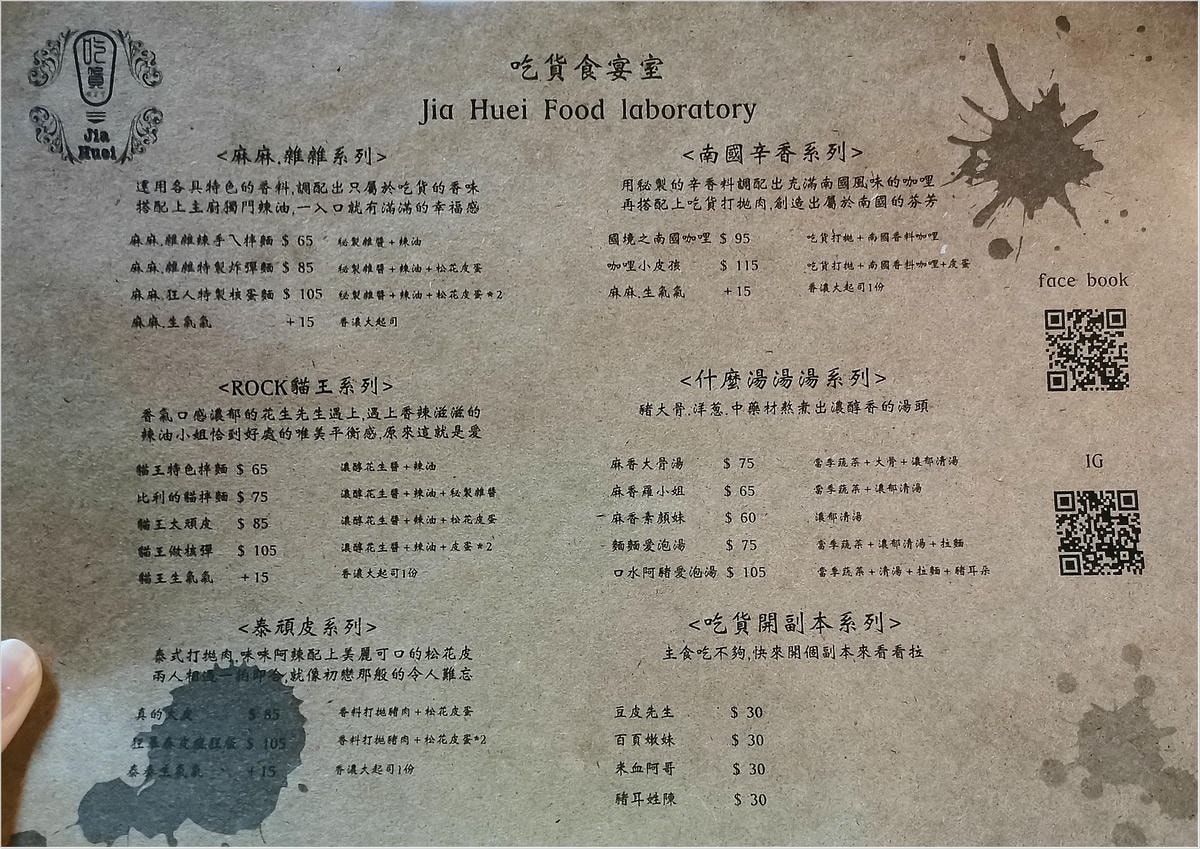 吃貨
Jia
Huei
吃貨食宴室
Jia Huei Food laboratory
<麻麻.雜雜系列>
運用各具特色的香料,調配出只屬於吃貨的香味
搭配上主廚獨門辣油,一入口就有滿滿的幸福感
麻麻.雜雜辣手ㄟ拌麵 $ 65 秘製雜醬+辣油
麻麻.雜雜特製炸彈麵 $ 85 秘製雜醬+辣油+松花皮蛋
麻麻.狂人特製核蛋麵 $ 105 秘製雜醬+辣油+松花皮蛋*2
麻麻.生氣氣 +15 香濃大起司
<ROCK貓王系列>
香氣口感濃郁的花生先生遇上,遇上香辣滋滋的
辣油小姐恰到好處的唯美平衡感,原來這就是愛
貓王特色拌麵 $ 65 濃醇花生醬+辣油
比利的貓拌麵 $ 75 濃醇花生醬+辣油+秘製雜醬
貓王太頑皮 $ 85 濃醇花生醬+辣油+松花皮蛋
貓王做核彈 $ 105 濃醇花生醬+辣油+皮蛋*2
貓王生氣氣 +15 香濃大起司1份
<泰頑皮系列>
泰式打拋肉,味味阿辣配上美麗可口的松花皮
兩人相遇一拍即合,就像初戀那般的令人難忘
真的太皮 $ 85 香料打拋豬肉+松花皮蛋
狂暴泰皮瘋狂飯 $ 105 香料打拋豬肉+松花皮蛋*2
泰泰生氣氣 +15 香濃大起司1份
<南國辛香系列>
用秘製的辛香料調配出充滿南國風味的咖哩
再搭配上吃貨打拋肉,創造出屬於南國的芬芳
國境之南國咖哩 $ 95 吃貨打拋+南國香料咖哩
咖哩小皮孩 $ 115 吃貨打拋+南國香料咖哩+皮蛋
麻麻.生氣氣 +15 香濃大起司1份
<什麼湯湯湯系列>
豬大骨.洋蔥.中藥材熬煮出濃醇香的湯頭
麻香大骨湯 $ 75 當季蔬菜+大骨+濃郁清湯
麻香羅小姐 $ 65 當季蔬菜+濃郁清湯
麻香素顏妹 $ 60 濃郁清湯
麵麵愛泡湯 $ 75 當季蔬菜+濃郁清湯+拉麵
口水阿豬愛泡湯 $ 105 當季蔬菜+清湯+拉麵+豬耳朵
<吃貨開副本系列>
主食吃不夠,快來開個副本來看看拉
豆皮先生 $ 30
百頁嫩妹 $ 30
米血阿哥 $ 30
豬耳姓陳 $ 30
face book
IG